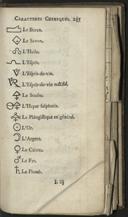 CARACTERES CHYMIQUES. 245
Le Borax.
Le Savon.
L'Huile.
L'Esprit.
L'Esprit-de-vin.
L'Esprit-de-vin rectifié.
Le Soufre.
L'Hepar sulphuris.
Le Phlogistique en général.
L'Or.
L'Argent.
Le Cuivre.
Le Fer.
Le Plomb.